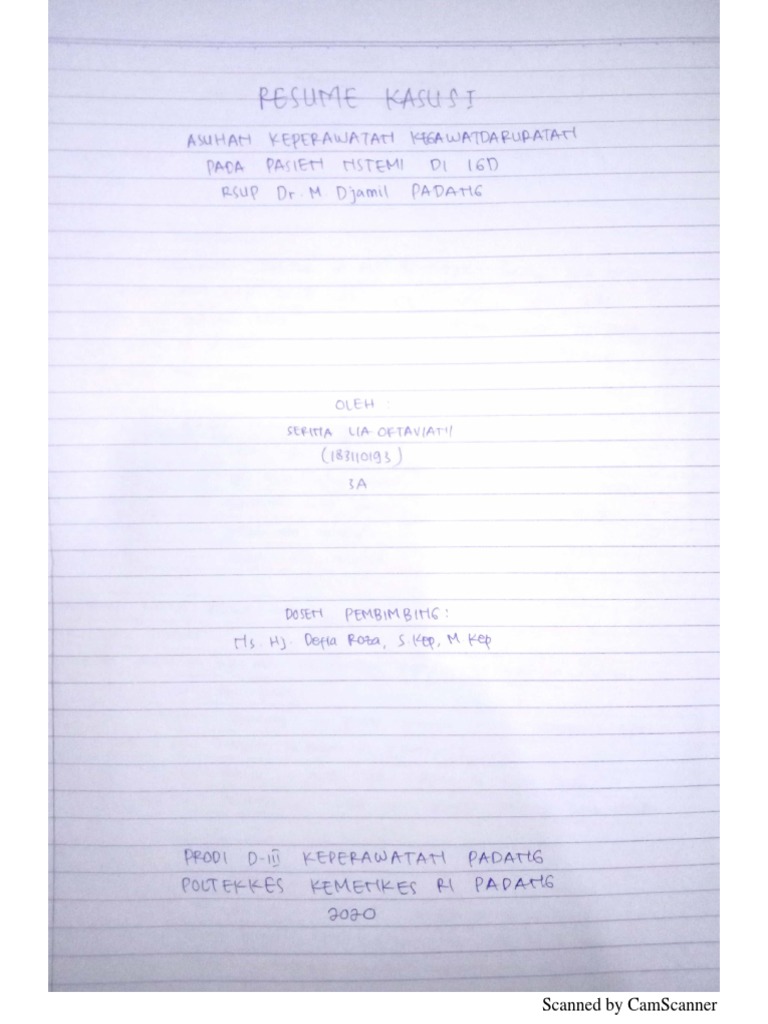 RESUME KASUS I
ASUHAN KEPERAWATAN KEGAWATDARURATAN
PADA PASIEN NSTEMI DI IGD
RSUP Dr. M Djamil PADANG
OLEH :
SERINA LIA OKTAVIANI
(183110193)
3A
DOSEN PEMBIMBING :
Ns. Hj. Defia Roza, S Kep, M Kep
PRODI D-III KEPERAWATAN PADANG
POLTEKKES KEMENKES RI PADANG
2020
Scanned by CamScanner